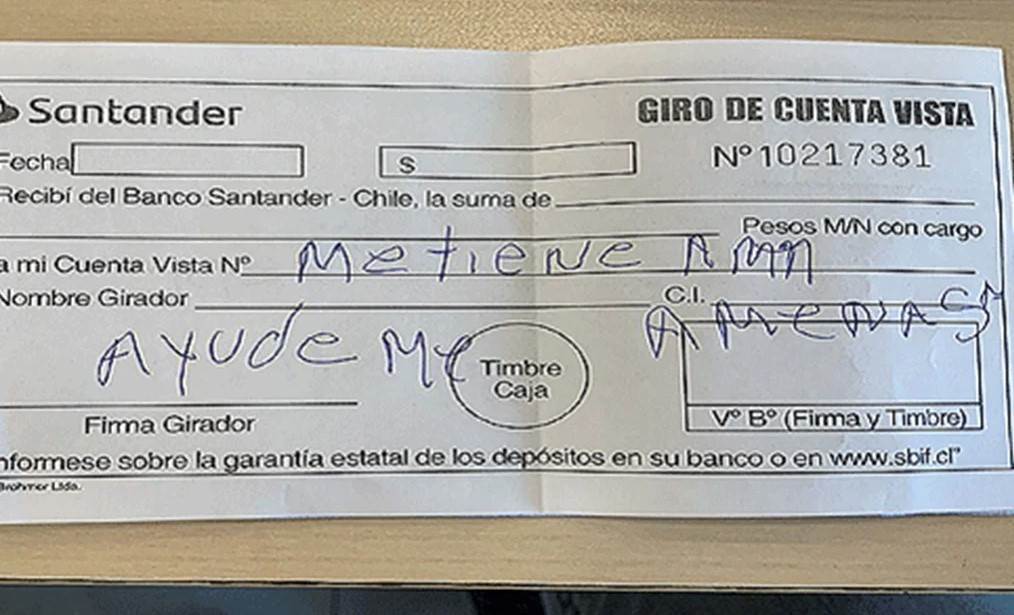 Santander GIRO DE CUENTA VISTA
Fecha $ Nº 10217381
Recibí del Banco Santander - Chile, la suma de
Pesos M/N con cargo
a mi Cuenta Vista Nº Me tiene
Nombre Girador C.I.
AYUdeMe
Timbre
Caja
Firma Girador Vº Bº (Firma y Timbre)
nformese sobre la garantía estatal de los depósitos en su banco o en www.sbif.cl"
Ltda.